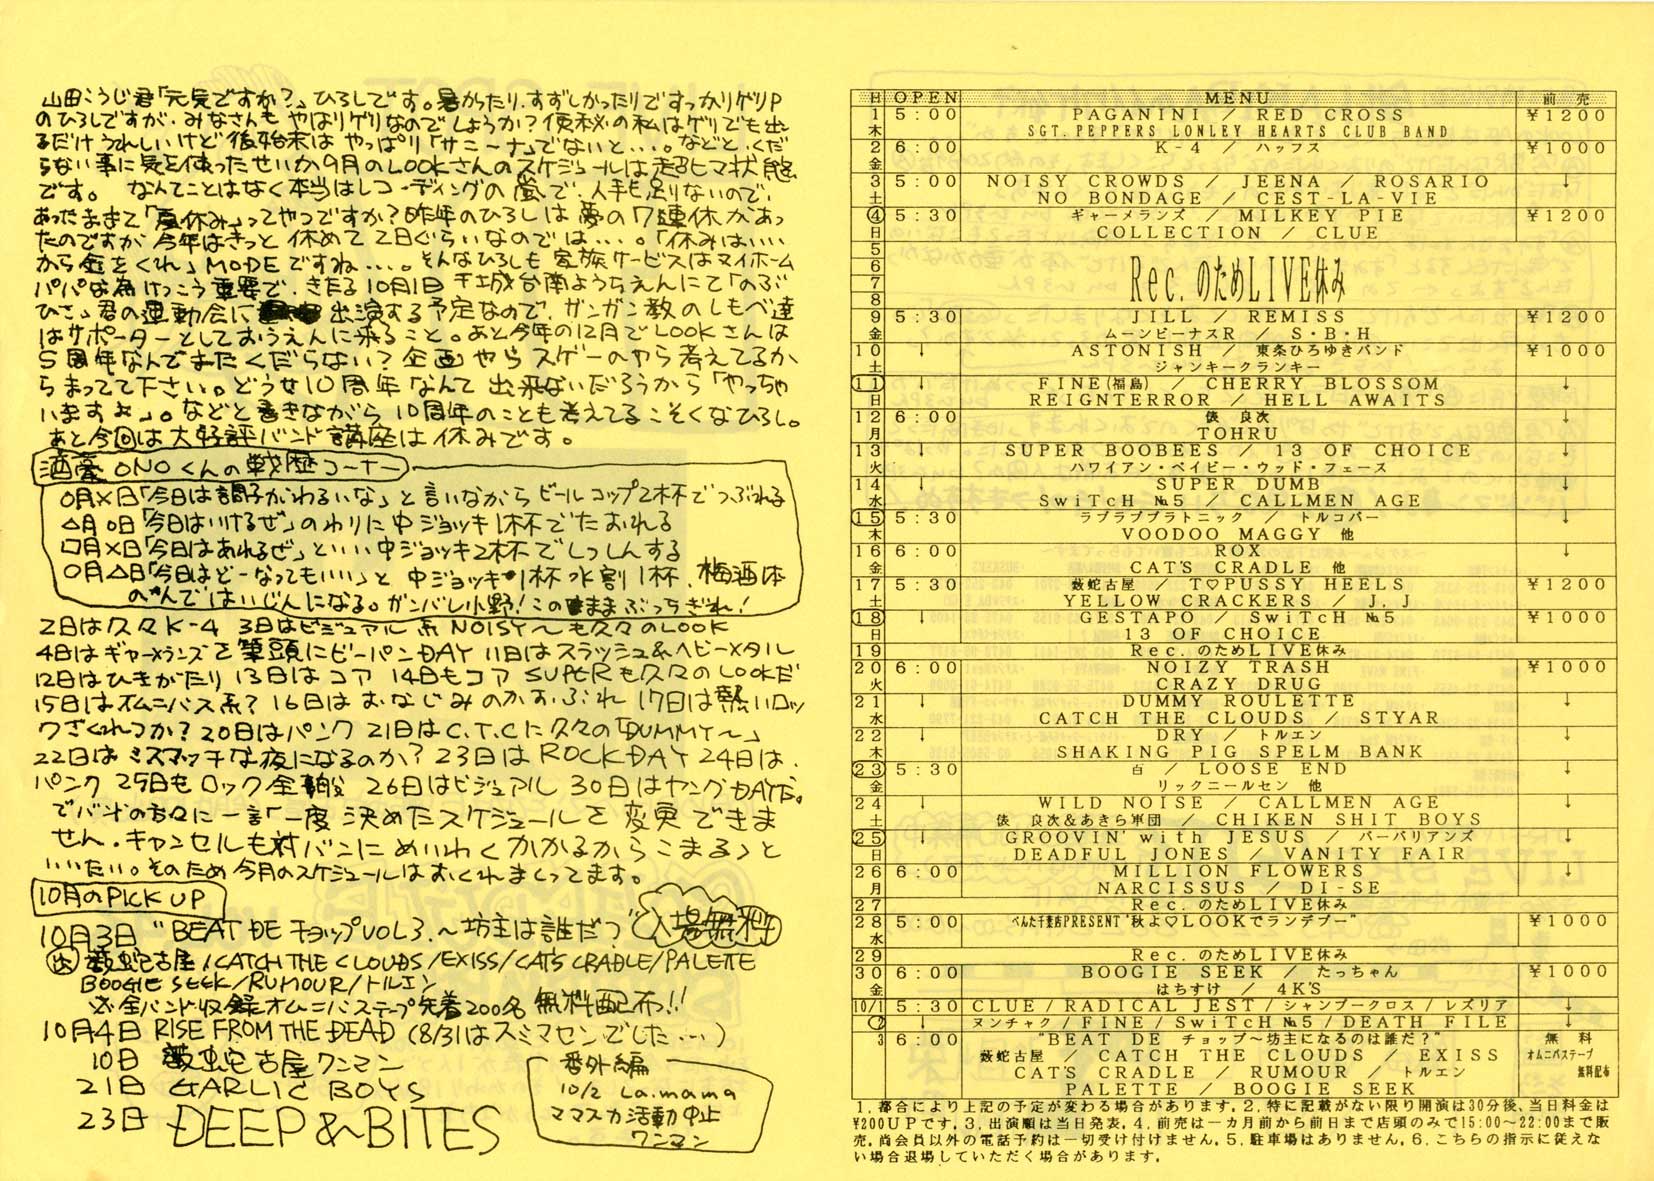 山田こうじ君「元気ですか?」ひろしです。暑かったり、すずしかったりですっかりゲリP
のひろしですが、みなさんも やはりゲリなのでしょうか?便秘の私はゲリでも出
るだけうれしいけど後始末は やっぱり「サニーナ」でないと…。などと、くだ
らない事に気を使ったせいか9月のLOOKさんのスケジュールは超ヒマ状態
です。 なんてことはなく本当はレコーディングの嵐で、人手も足りないので、
あったままで「夏休み」ってやつですか?昨年のひろしは夢の7連休があっ
たのですが 今年はきっと 休めて2日ぐらいなのでは…。「休みはいい
から金をくれ」MODEですね…。そんなひろしも 家族サービスはマイホーム
パパな為けっこう重要で、きたる10月1日 千城台南ようちえんにて「のぶ
ひさ」君の運動会に 出演する予定なので、ガンガン教のしもべ達
はサポーターとしておうえんに来ること。あと今年の12月でLOOKさんは
5周年なんでまたくだらない?企画やらスゲーのやら考えてるか
らまってて下さい。どうせ10周年なんて出来ないだろうから「やっちゃ
いますよ」。などと書きながら10周年のことも考えてるこそくなひろし。
あと今回は大好評バンド講座は休みです。
酒豪ONOくんの戦歴コーナー
○月×日「今日は調子がわるいな」と言いながらビールコップ2杯でつぶれる
△月○日「今日はいけるぜ」のわりに中ジョッキ1杯でたおれる
□月×日「今日はあれるぜ」といい中ジョッキ2杯でしっしんする
○月△日「今日はどーなってもいい」と 中ジョッキ1杯 水割1杯、梅酒1本
のんではいじんになる。ガンバレ小野!このままぶっちぎれ!
2日は久々K-4 3日はビジュアル系NOISY〜も久々のLOOK
4日はギャーメランズを筆頭にビーパンDAY 11日はスラッシュ&ヘビーメタル
12日はひきがたり 13日はコア 14日もコア SUPERも久々のLOOKだ
15日はオムニバス系? 16日はおなじみのかすぶれ 17日は熱いロッ
クざくれつか? 20日はパンク 21日はC.T.Cに久々の「DUMMY〜」
22日はミスマッチな夜になるのか? 23日はROCKDAY 24日は、
パンク 25日もロック全般 26日はビジュアル 30日はヤングDAYだ。
でバンドの方々に一言「一度決めたスケジュールを変更できま
せん。キャンセルも対バンにめいわくかかるからこまる」と
いいたい。そのため今月のスケジュールはおくれまくってます。
10月のPICK UP
10月3日 "BEAT DE チョップVOL3.〜坊主は誰だっ" 入場無料
出 薮蛇古屋/CATCH THE CLOUDS/EXISS/CAT'S CRADLE/PALETTE
BOOGIE SEEK/RUMOUR/トルエン
※全バンド収録オムニバステープ先着200名 無料配布!!
10月4日 RISE FROM THE DEAD (8/31はスミマセンでした…)
10日 薮蛇古屋ワンマン
21日 GARLIC BOYS
23日 DEEP&BITES
番外編
10/2 La.mama
ママスカ活動中止
ワンマン
日 OPEN MENU 前売
1 5:00 PAGANINI / RED CROSS ¥1200
木 SGT. PEPPERS LONLEY HEARTS CLUB BAND
2 6:00 K-4 / ハッフス ¥1000
金
3 5:00 NOISY CROWDS / JEENA / ROSARIO ↓
土 NO BONDAGE / CEST-LA-VIE
④ 5:30 ギャーメランズ / MILKEY PIE ¥1200
日 COLLECTION / CLUE
5
6
7
8
Rec. のためLIVE休み
9 5:30 JILL / REMISS ¥1200
金 ムーンビーナスR / S・B・H
10 ↓ ASTONISH / 東条ひろゆきバンド ¥1000
土 ジャンキークランキー
⑪ ↓ FINE(福島) / CHERRY BLOSSOM ↓
日 REIGNTERROR / HELL AWAITS
12 6:00 俵 良次 ↓
月 TOHRU
13 ↓ SUPER BOOBEES / 13 OF CHOICE ↓
火 ハワイアン・ベイビー・ウッド・フェース
14 ↓ SUPER DUMB ↓
水 SwiTcH №5 / CALLMEN AGE
⑮ 5:30 ラブラブプラトニック / トルコバー ↓
木 VOODOO MAGGY 他
16 6:00 ROX ↓
金 CATS CRADLE 他
17 5:30 薮蛇古屋 / T♡PUSSY HEELS ¥1200
土 YELLOW CRACKERS / J, J
⑱ ↓ GESTAPO / SwiTcH №5 ¥1000
日 13 OF CHOICE
19 Rec. のためLIVE休み
20 6:00 NOIZY TRASH ¥1000
火 CRAZY DRUG
21 ↓ DUMMY ROULETTE ↓
水 CATCH THE CLOUDS / STYAR
22 ↓ DRY / トルエン ↓
木 SHAKING PIG SPELM BANK
㉓ 5:30 百 / LOOSE END ↓
金 リックニールセン 他
24 ↓ WILD NOISE / CALLMEN AGE ↓
土 俵 良次&あきら軍団 / CHIKEN SHIT BOYS
㉕ ↓ GROOVIN' with JESUS / バーバリアンズ ↓
日 DEADFUL JONES / VANITY FAIR
26 6:00 MILLION FLOWERS ↓
月 NARCISSUS / DI-SE
27 Rec. のためLIVE休み
28 5:00 べんた千葉店PRESENT"秋よ♡LOOKでランデブー" ¥1000
水
29 Rec. のためLIVE休み
30 6:00 BOOGIE SEEK / たっちゃん ¥1000
金 はちすけ / 4K'S
10/1 5:30 CLUE/RADICAL JEST/シャンプークロス/レズリア ↓
② ↓ ヌンチャク/FINE/SwiTcH №5/DEATH FILE ↓
3 6:00 "BEAT DE チョップ〜坊主になるのは誰だ?" 無料
薮蛇古屋 / CATCH THE CLOUDS / EXISS オムニバステープ
CAT'S CRADLE / RUMOUR / トルエン 無料配布
PALETTE / BOOGIE SEEK
1. 都合により上記の予定が変わる場合があります。2. 特に記載がない限り開演は30分後、当日料金は
¥200UPです。3. 出演順は当日発表。4. 前売は一カ月前から前日まで店頭のみで15:00〜22:00まで販
売。尚会員以外の電話予約は一切受け付けません。5. 駐車場はありません。6. こちらの指示に従えな
い場合退場していただく場合があります。